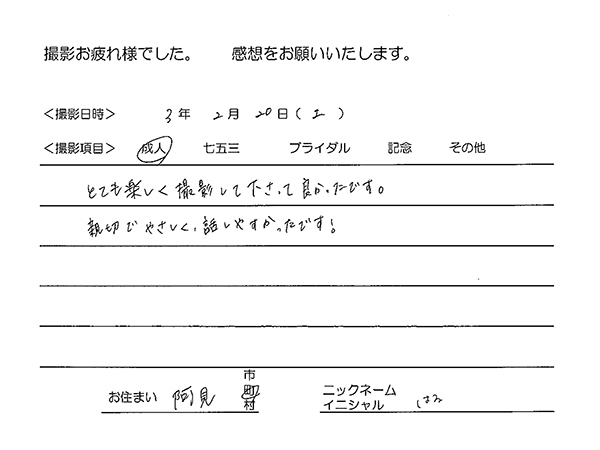 撮影お疲れ様でした。 感想をお願いいたします。
＜撮影日時＞ 3年 2月 20日（土）
＜撮影項目＞ 成人 七五三 ブライダル 記念 その他
とても楽しく撮影して下さって良かったです。
親切でやさしく、話しやすかったです！
お住まい 阿見 市町村 ニックネーム イニシャル はる